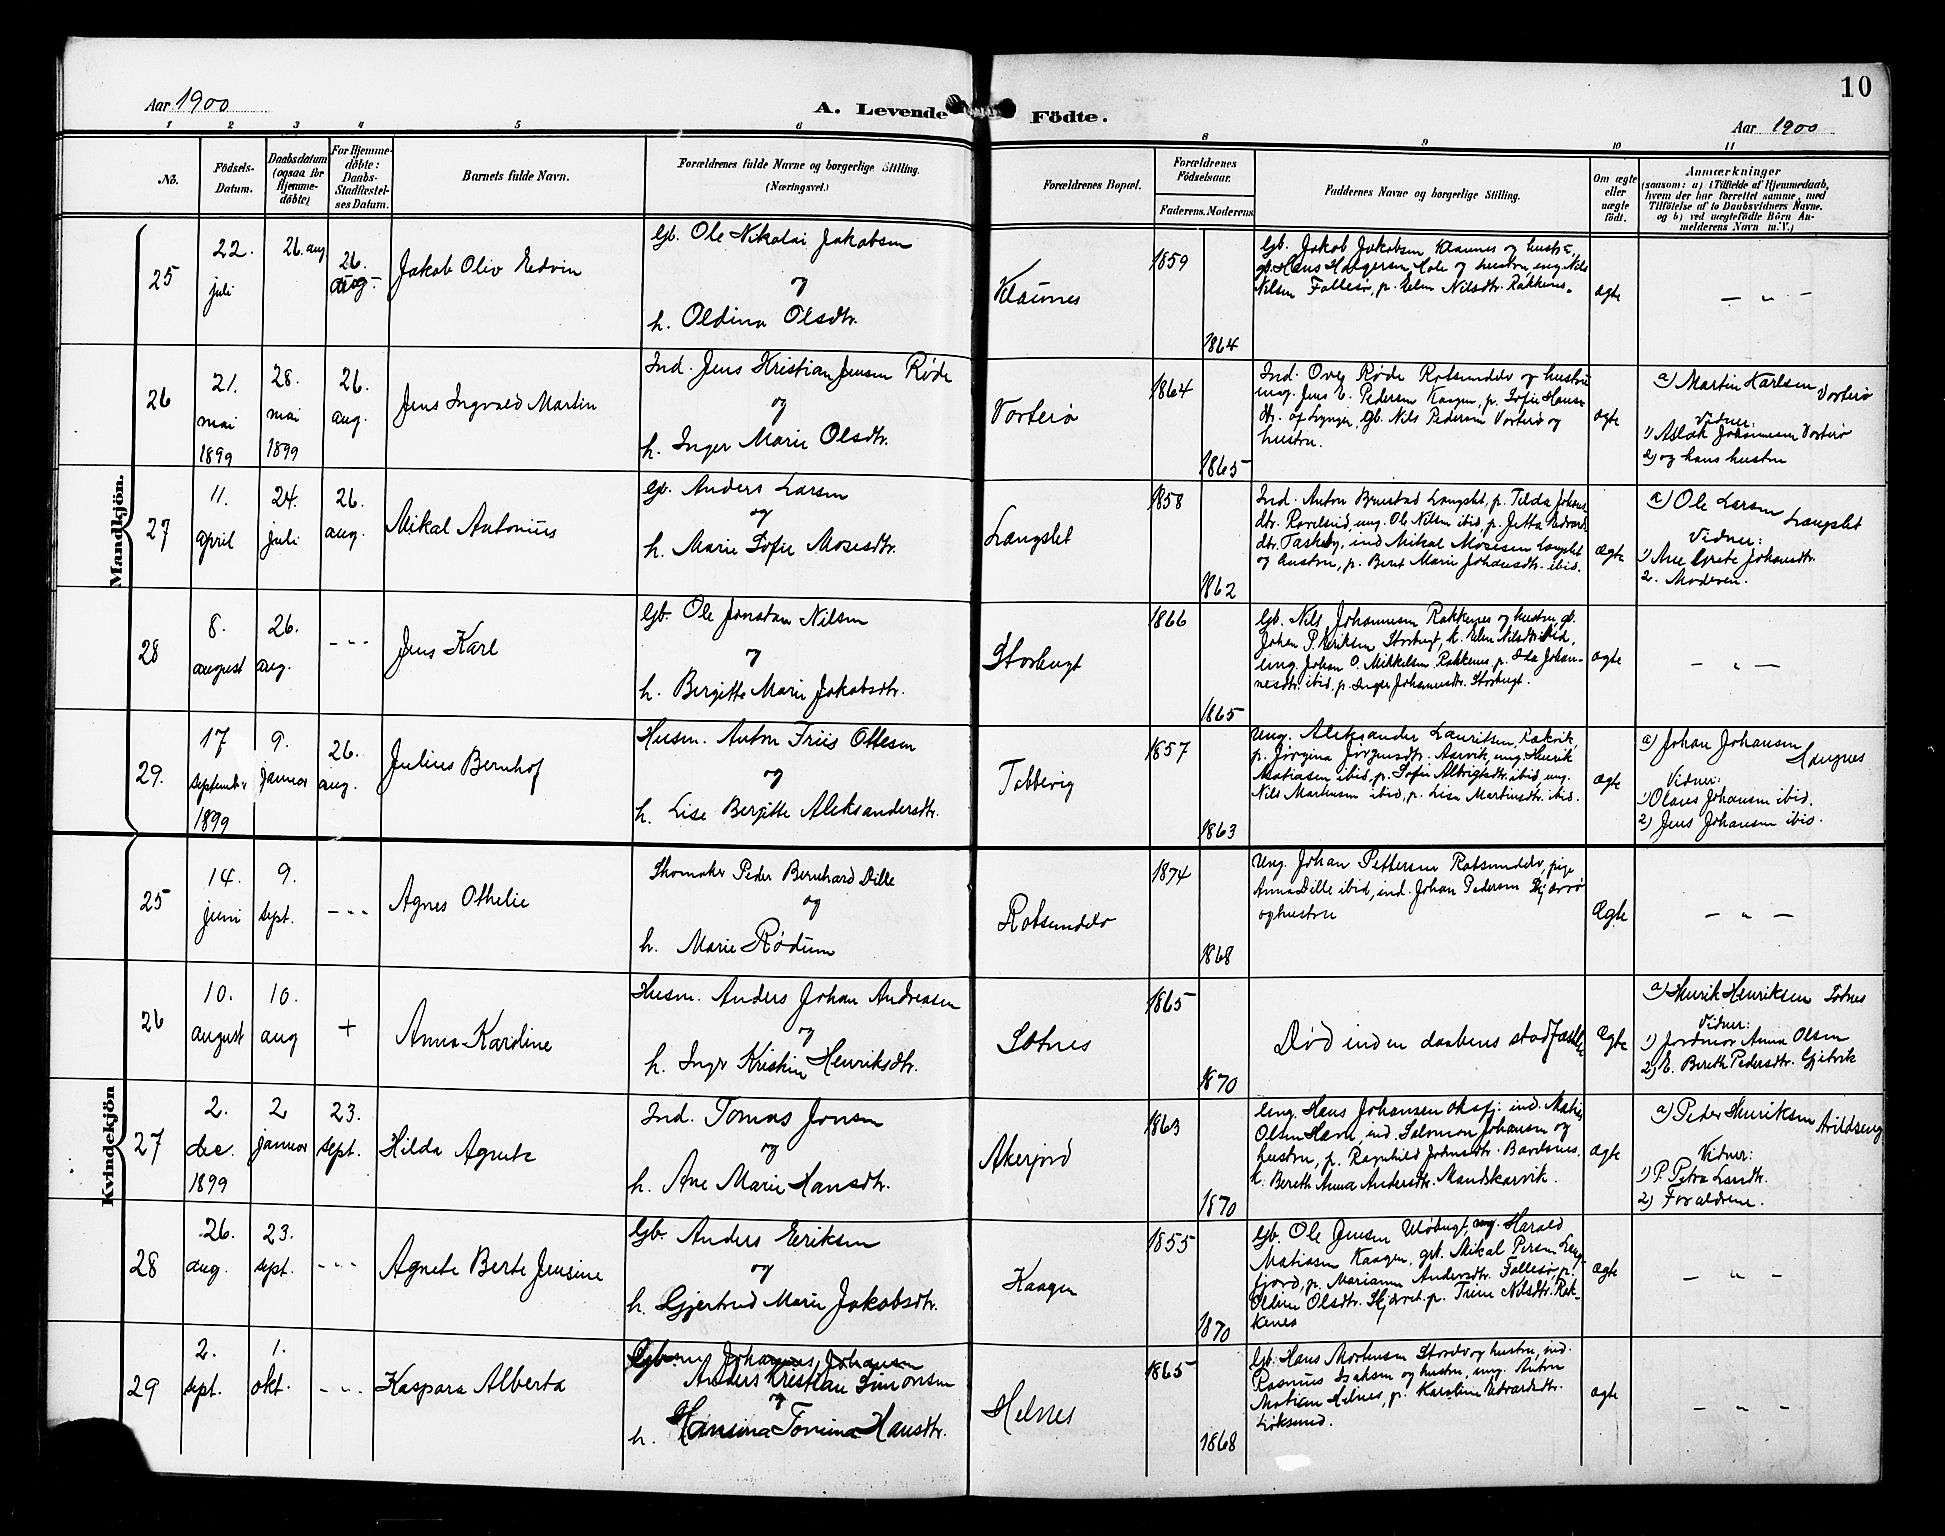 10
Aar 1900
A. Levende Födte.
Aar 1900
1 2 3 4 5 6 8 9 10 11
No.
Födsels-
Datum.
Daabsdatum
(ogsaa for
Hjemme-
döbte)
For Hjemme-
döbte:
Daabs-
Stadfæstel-
ses Datum.
Barnets fulde Navn.
Forældrenes fulde Navne og borgerlige Stilling.
(Næringsvei.)
Forældrenes Bopæl.
Forældrenes
Födselsaar.
Faderens. Moderens.
Faddernes Navne og borgerlige Stilling.
Om ægte
eller
uægte
födt.
Anmærkninger
(saasom: a) i Tilfælde af Hjemmedaab,
hvem der har forrettet samme, med
Tilföielse af to Daabsvidners Navne,
og b) ved uegtefödte Börn An-
melderens Navn m.V.)
Mandkjön.
25
22.
juli
26. aug
26.
aug.
Jakob Oliv Edvin
Gb. Ole Nikolai Jakobsen
og
h. Oldina Olsdtr.
Klaunes
1859
1864
Gb. Jakob Jakobsen Klaunes og hustru,
gb. Hans Holgersen Hole og hustru, ung. Nils
Nilsen Follesø, p. Elen Nilsdtr. Rakkenes.
ægte
— " —
26
21.
mai
1899
28.
mai
1899
26.
aug.
Jens Ingvald Martin
Ind. Jens Kristian Jensen Røde
og
h. Inger Marie Olsdtr.
Vorterø
1864
1865
Ind. Ove Røde Rotsundelv og hustru
ung. Jens E. Pedersen Kaagen, p. Sofie Hans-
dtr. af Lynger, Gb. Nils Pedersen Vorterø og
hustru.
ægte
a) Martin Karlsen Vorterø
Vidner:
1) Aslak Johannesen Vorterø
2) og hans hustru
27
11.
april
24.
juli
26.
aug.
Mikal Antonius
Gb. Anders Larsen
og
h. Marie Sofie Mosesdtr.
Langslet
1858
1862
Ind. Anton Brustad Langslet, p. Tilda Johns
dtr. Ravelseid, ung. Ole Nilsen ibid, p. Jetta Edvard
dtr. Taskeby, ind Mikal Mosesen Langslet
og hustru, p. Beret Marie Johansdtr. ibid.
Ægte
a) Ole Larsen Langslet
Vidner:
1) Ane Grete Johansdtr.
2. Moderen.
28
8.
august
26.
aug.
- - -
Jens Karl
Gb. Ole Jonatan Nilsen
og
h. Bergitte Marie Jakobsdtr.
Storbugt
1866
1865
Gb. Nils Johannesen Rakkenes og hustru gb.
Johan P. Eriksen Storbugt, k. Elen Nilsdtr ibid,
ung. Johan O. Mikkelsen Rakkenes, p. Ida Johan-
nesdtr. ibid, p. Inger Johannesdtr. Storbugt.
ægte
— " —
29.
17
septembr
1899
9.
januar
26.
aug.
Julius Bernhof
Husm. Anton Friis Ottesen
og
h. Lise Bergitte Aleksandersdtr.
Tobbevig
1857
1863
Ung. Aleksander Lauritsen, Rakvik,
p. Jørgina Jørgensdtr. Aarvik, ung. Henrik
Matiasen ibid, p. Sofie Albrigtsdtr. ibid, ung.
Nils Martensen ibid, p. Lise Martinsdtr. ibid.
Ægte
a) Johan Johansen Haugnes
Vidner:
1) Olaus Johansen ibid.
2) Jens Johansen ibid.
Kvindekjön
25
14.
juni
9.
sept.
- - -
Agnes Othelie
Skomaker Peder Bernhard Dille
og
h. Marie Rødum
Rotsundelv
1874
1868
Ung. Johan Pettersen Rotsundelv, pige
Anna Dille ibid, ind. Johan Pedersen Skjærvø
og hustru
Ægte
— " —
26
10.
august
10.
aug
+
Anna Karoline
Husm. Anders Johan Andreasen
og
h. Inger Kristine Henriksdtr.
Sotnes
1865
1870
Død inden daabens stadfæstelse
Ægte
a) Henrik Henriksen Sotnes
Vidner:
1) Jordmor Anna Olsen
2) E. Bereth Pedersdtr. Gjetvik
27
2.
dec.
1899
2
januar
23.
sept.
Hilda Agnete
Ind. Tomas Jonsen
og
h. Ane Marie Hansdtr.
Akerjord
1863
1870
Ung. Hans Johansen Oksfj. ind. Matis
Olsen Havn, ind. Salomon Johansen og
hustru, p. Ragnhild Johnsdtr. Bavelsnes.
k. Bereth Anna Andersdtr. Mandskarvik.
Ægte
a) Peder Henriksen Arildseng
Vidner:
1) P. Petra Larsdtr.
2) Forældrene.
28
26.
aug.
23.
sept.
- - -
Agnete Berte Jensine
Gb. Anders Eriksen
og
h. Gjertrud Marie Jakobsdtr.
Kaagen
1855
1870
Gb. Ole Jensen Uløbugt, ung. Harald
Matiasen Kaagen, gb. Mikal Persen Lang-
fjord, p. Marianne Andersdtr. Follesø, p.
Oline Olsdtr. Skjærvø. p. Trine Nilsdtr. Rak-
kenes
Ægte
— " —
29
2.
sept.
1.
okt.
- - -
Kaspara Alberta
Gb. Johannes Johansen
Anders Kristian Simonsen
og
h. Hansina Tomina Hansdtr.
Helnes
1865
1868
Gb. Hans Mortensen Stordv og hustru, ind.
Rasmus Isaksen og hustru, ung. Anton
Matisen Helnes, p. Karoline Edvardsdtr.
Løksund.
ægte
— " —